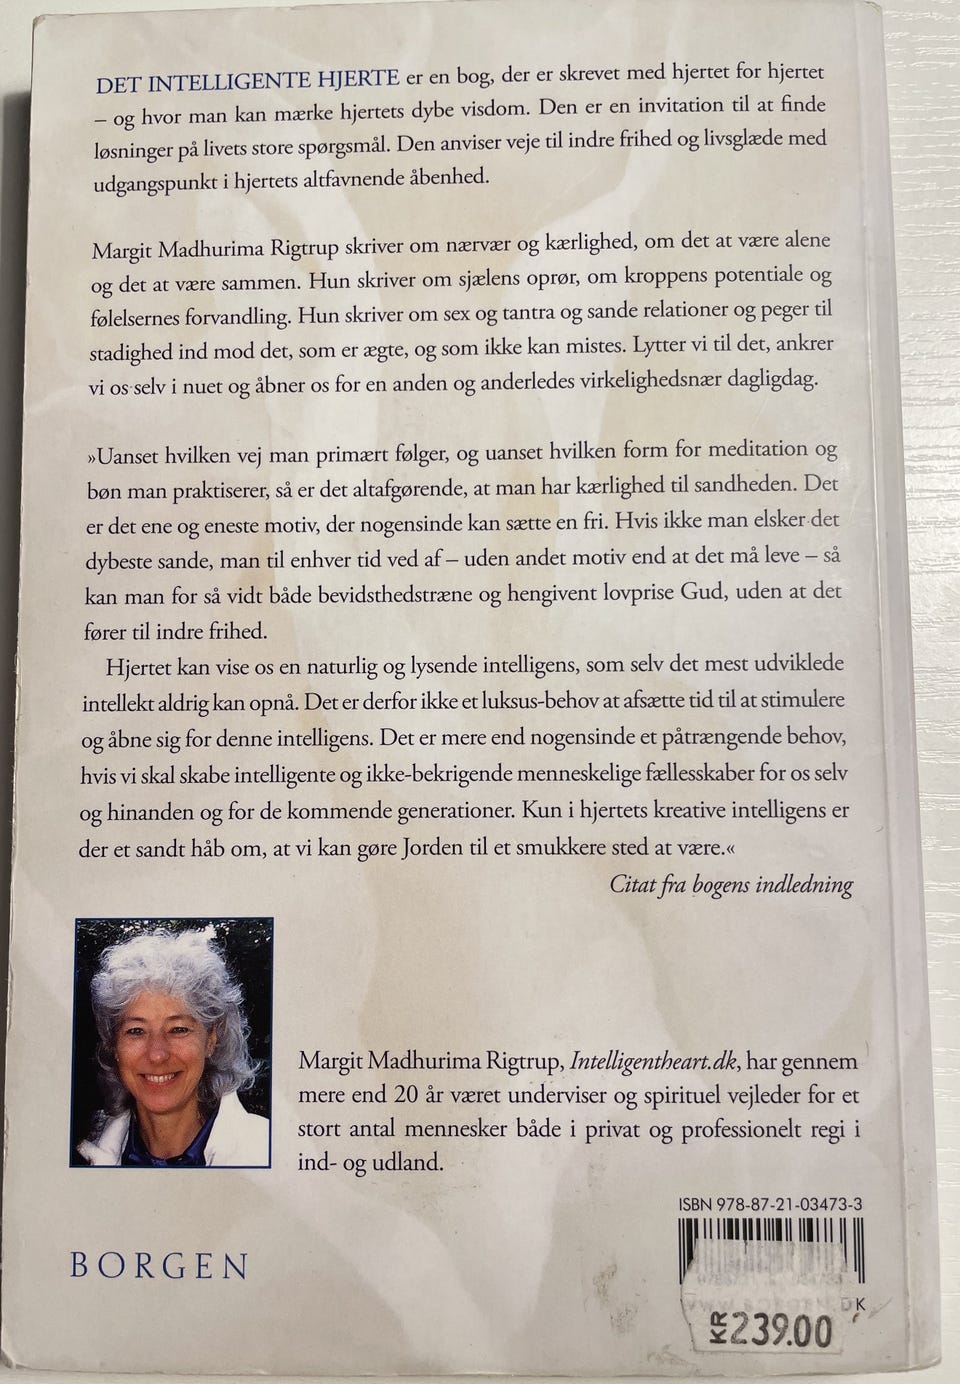 DET INTELLIGENTE HJERTE er en bog, der er skrevet med hjertet for hjertet
– og hvor man kan mærke hjertets dybe visdom. Den er en invitation til at finde
løsninger på livets store spørgsmål. Den anviser veje til indre frihed og livsglæde med
udgangspunkt i hjertets altfavnende åbenhed.
Margit Madhurima Rigtrup skriver om nærvær og kærlighed, om det at være alene
og det at være sammen. Hun skriver om sjælens oprør, om kroppens potentiale og
følelsernes forvandling. Hun skriver om sex og tantra og sande relationer og peger til
stadighed ind mod det, som er ægte, og som ikke kan mistes. Lytter vi til det, ankrer
vi os selv i nuet og åbner os for en anden og anderledes virkelighedsnær dagligdag.
»Uanset hvilken vej man primært følger, og uanset hvilken form for meditation og
bøn man praktiserer, så er det altafgørende, at man har kærlighed til sandheden. Det
er det ene og eneste motiv, der nogensinde kan sætte en fri. Hvis ikke man elsker det
dybeste sande, man til enhver tid ved af – uden andet motiv end at det må leve – så
kan man for så vidt både bevidsthedstræne og hengivent lovprise Gud, uden at det
fører til indre frihed.
Hjertet kan vise os en naturlig og lysende intelligens, som selv det mest udviklede
intellekt aldrig kan opnå. Det er derfor ikke et luksus-behov at afsætte tid til at stimulere
og åbne sig for denne intelligens. Det er mere end nogensinde et påtrængende behov,
hvis vi skal skabe intelligente og ikke-bekrigende menneskelige fællesskaber for os selv
og hinanden og for de kommende generationer. Kun i hjertets kreative intelligens er
der et sandt håb om, at vi kan gøre Jorden til et smukkere sted at være.«
Citat fra bogens indledning
Margit Madhurima Rigtrup, Intelligentheart.dk, har gennem
mere end 20 år været underviser og spirituel vejleder for et
stort antal mennesker både i privat og professionelt regi i
ind- og udland.
ISBN 978-87-21-03473-3
BORGEN
DK
KR 239.00